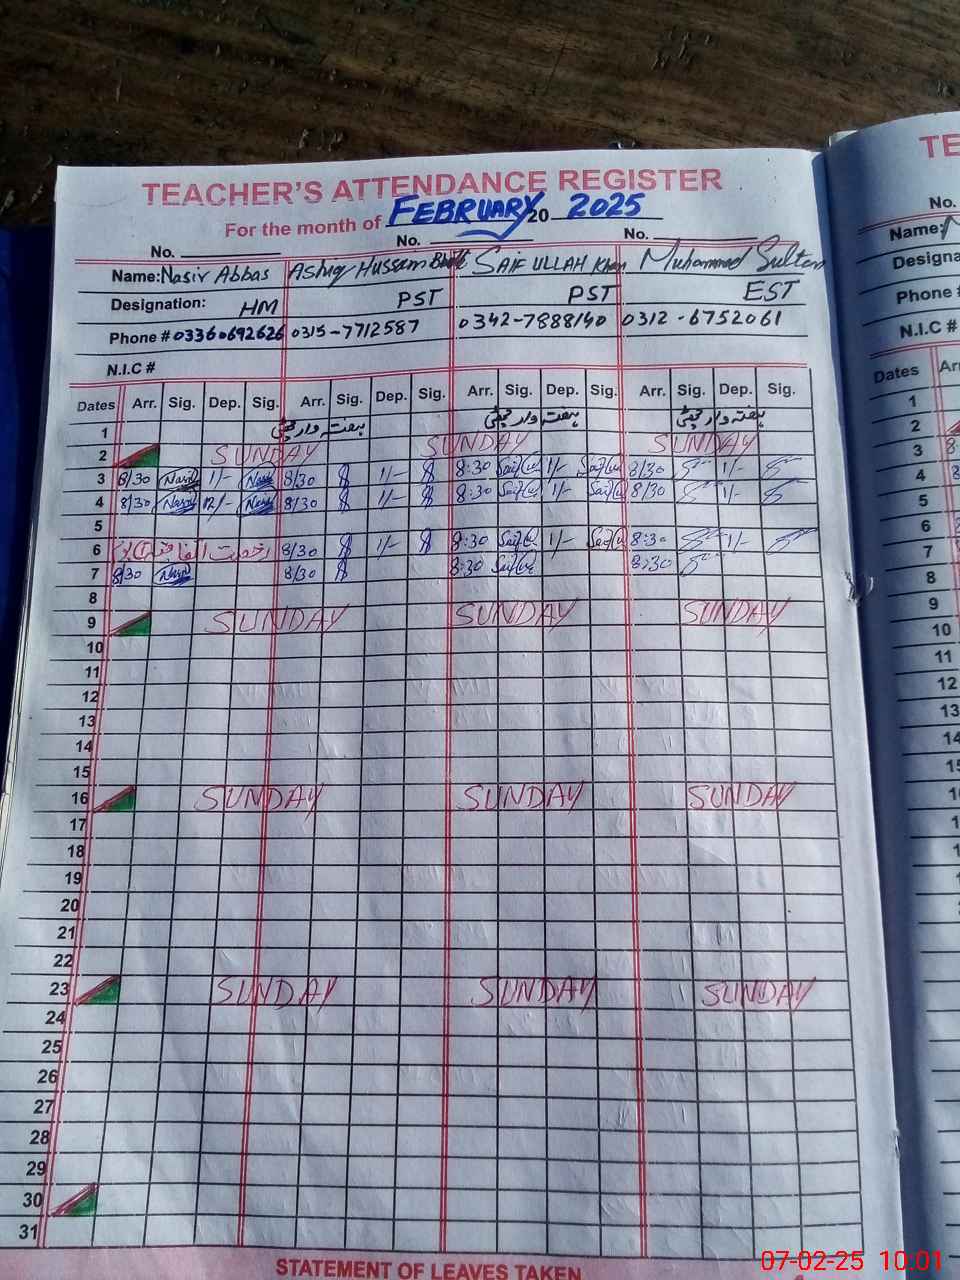 TEACHER'S ATTENDANCE REGISTER
For the month of FEBRUARY 20 2025
No. No. No.
Name: Nasir Abbas Ashiq Hussain SAIF ULLAH Khan Muhammad Sultan
Designation: HM PST PST EST
Phone # 03360692626 0315-7712587 0342-7888140 0312-6752061
N.I.C #
Dates Arr. Sig. Dep. Sig. Arr. Sig. Dep. Sig. Arr. Sig. Dep. Sig. Arr. Sig. Dep. Sig.
1 ہفتہ وار چھٹی ہفتہ وار چھٹی ہفتہ وار چھٹی
2 SUNDAY SUNDAY SUNDAY
3 8/30 Nasir 1/- Nasir 8/30 1/- 8:30 1/- 8/30 1/-
4 8/30 Nasir 12/- Nasir 8/30 1/- 8:30 1/- 8/30 1/-
5
6 رخصت اتفاقیہ 8/30 1/- 8:30 1/- 8:30 1/-
7 8/30 Nasir 8/30 8:30 8:30
8
9 SUNDAY SUNDAY SUNDAY
10
11
12
13
14
15
16 SUNDAY SUNDAY SUNDAY
17
18
19
20
21
22
23 SUNDAY SUNDAY SUNDAY
24
25
26
27
28
29
30
31
STATEMENT OF LEAVES TAKEN
TE
No.
Name:
Designa
Phone #
N.I.C #
Dates Arr
1
2
3
4
5
6
7
8
9
10
11
12
13
14
15
07-02-25 10:01